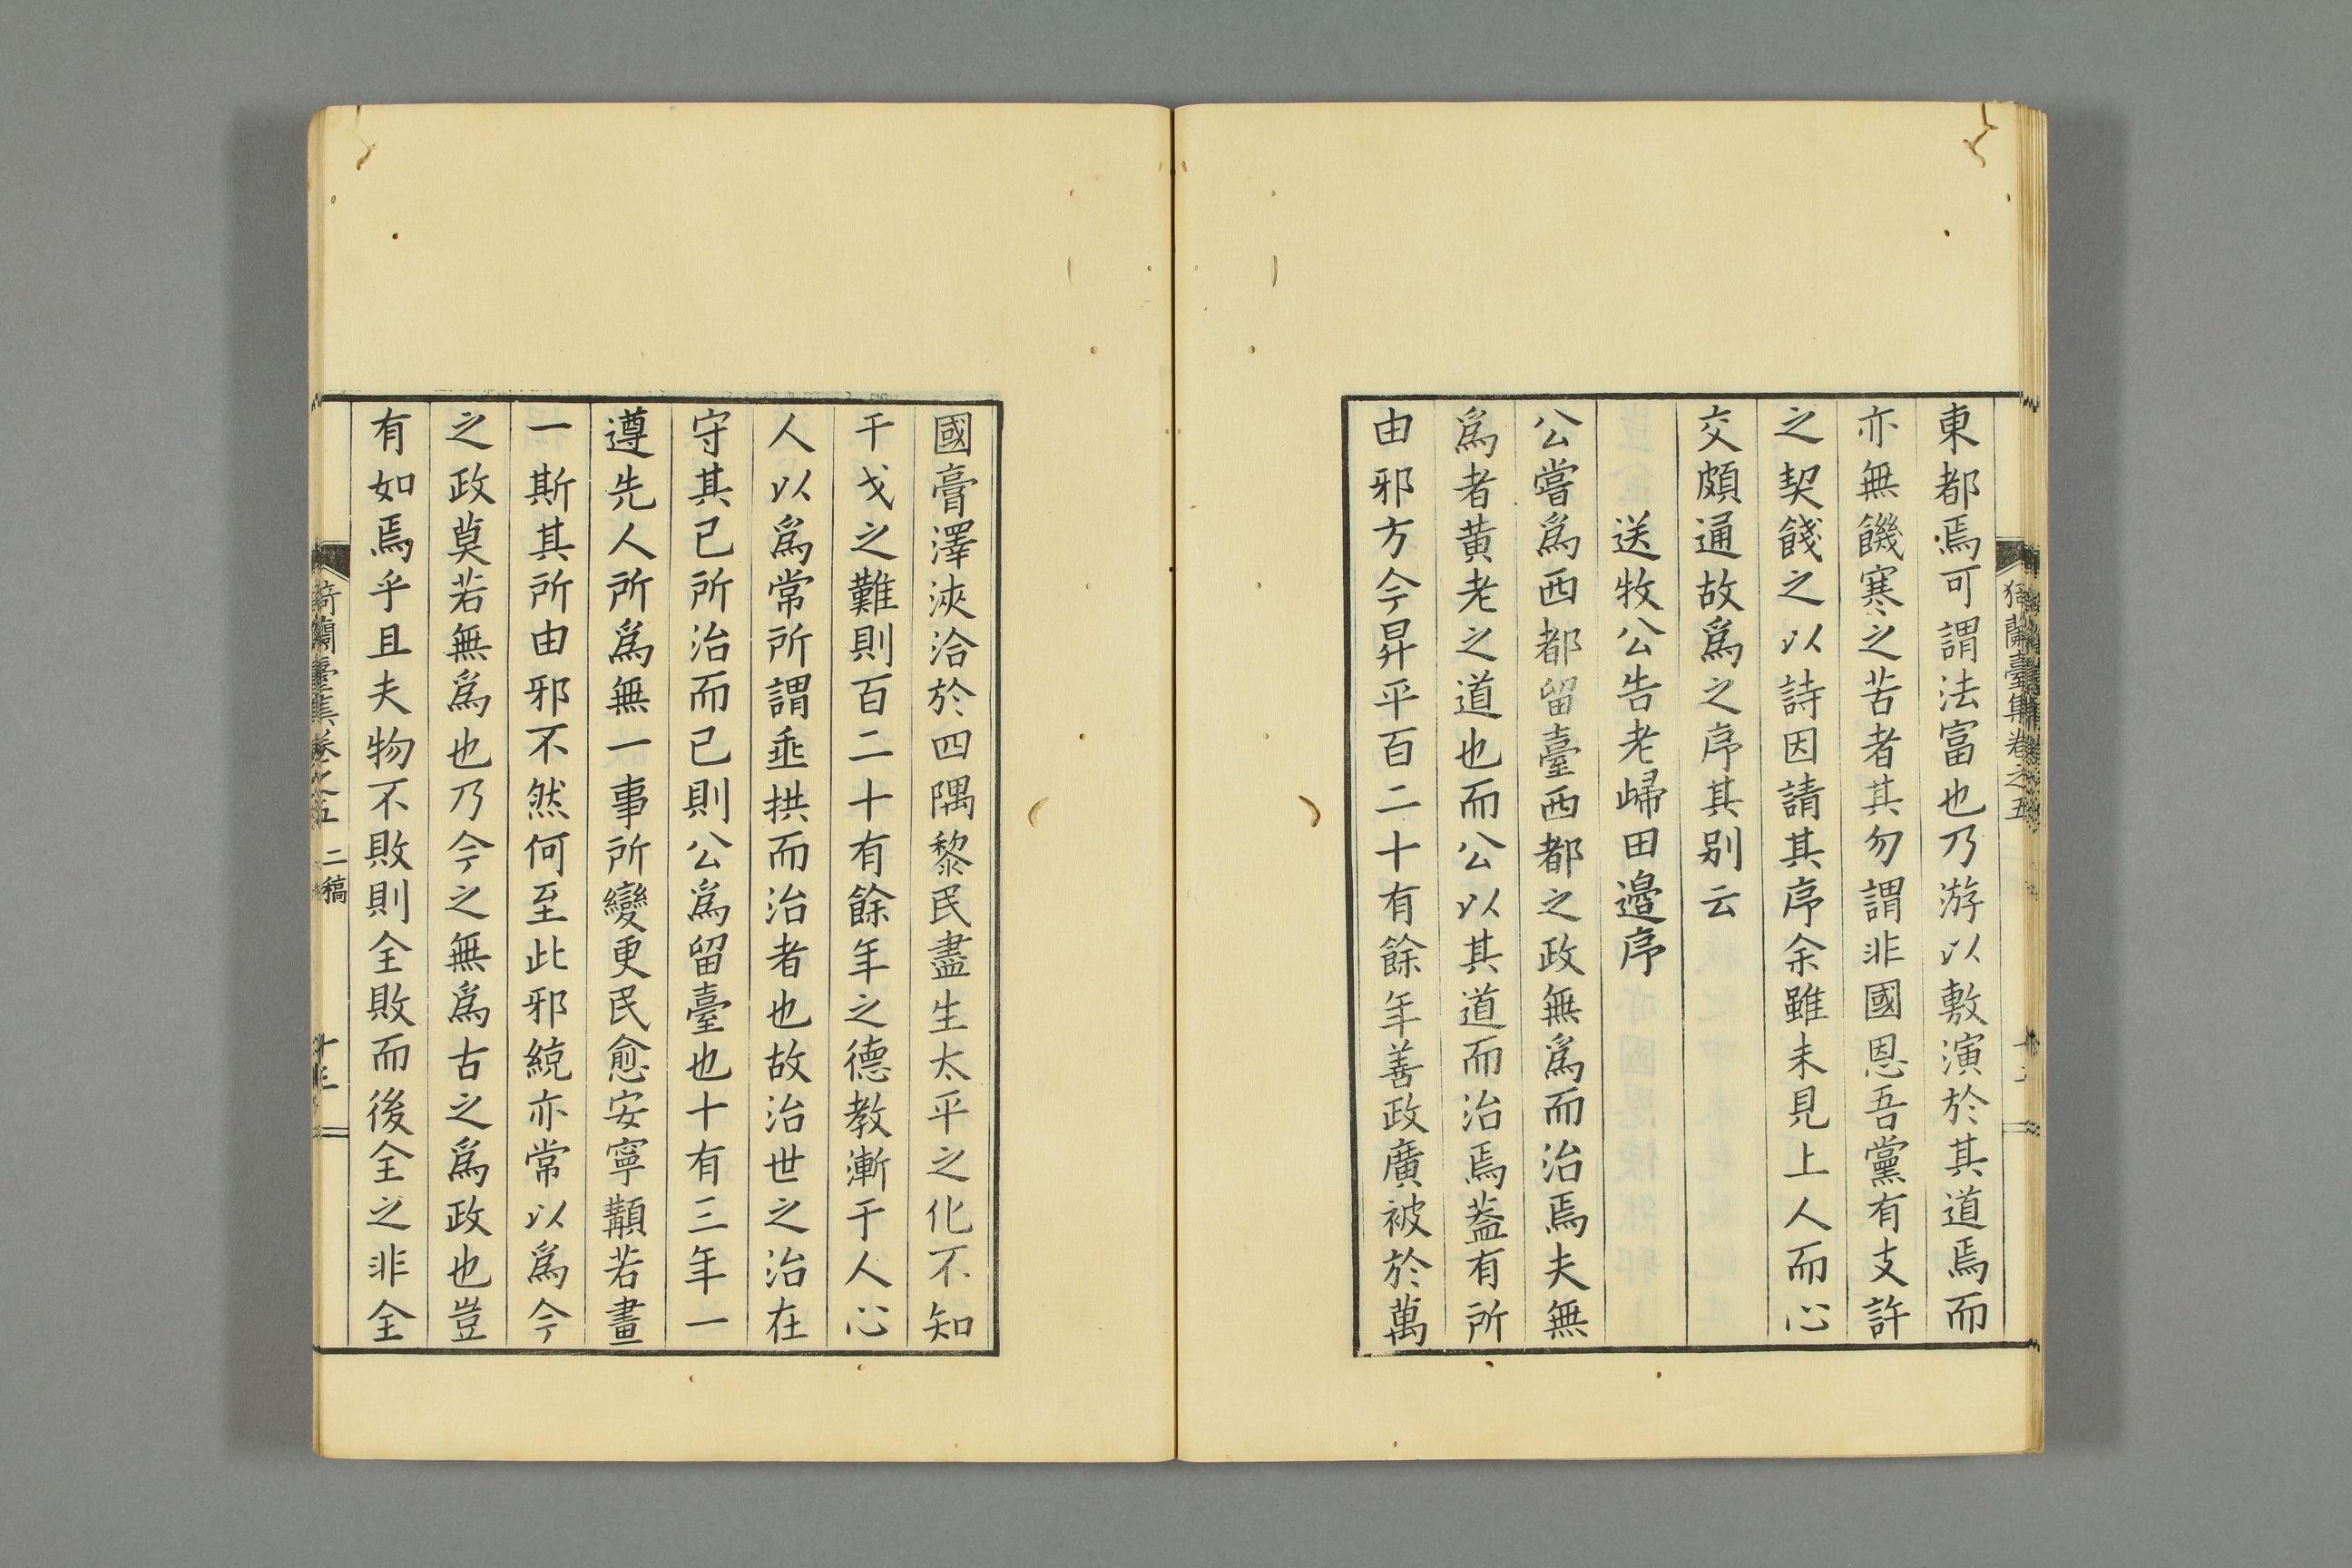 東都焉可謂法富也乃游以敷演於其道焉而
亦無饑寒之苦者其勿謂非國恩吾黨有支許
之契餞之以詩因請其序余雖未見上人而心
交頗通故爲之序其別云
送牧公告老歸田邉序
公嘗爲西都留臺西都之政無爲而治焉夫無
爲者黄老之道也而公以其道而治焉葢有所
由邪方今昇平百二十有餘年善政廣被於萬
國膏澤浹洽於四隅黎民盡生太平之化不知
干戈之難則百二十有餘年之德教漸于人心
人以爲常所謂垂拱而治者也故治世之治在
守其已所治而已則公爲留臺也十有三年一
遵先人所爲無一事所變更民愈安寧顜若畫
一斯其所由邪不然何至此邪綂亦常以爲今
之政莫若無爲也乃今之無爲古之爲政也豈
有如焉乎且夫物不敗則全敗而後全之非全
蘭臺集卷之五 二稿 十三